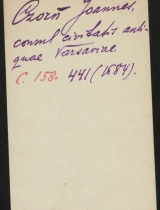 Czorn̄ Joannes,
consul civitatis anti-
quae Varsaviae.
C. 158. 441 (1684).